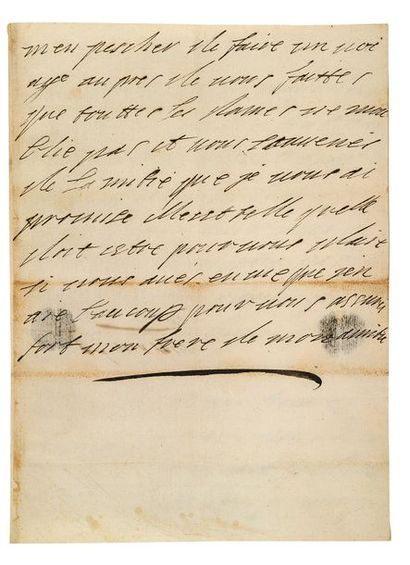 men pescher de faire un voi
age aupres de vous faittes
que touttes les dames ne mou
blie pas et vous souvenés
de lamitié que je vous ai
promise elle est telle quelle
doit estre pour vous plaire
si vous avés envie que jen
aie beaucoup pour vous assuré
fort mon frere de mon amitié